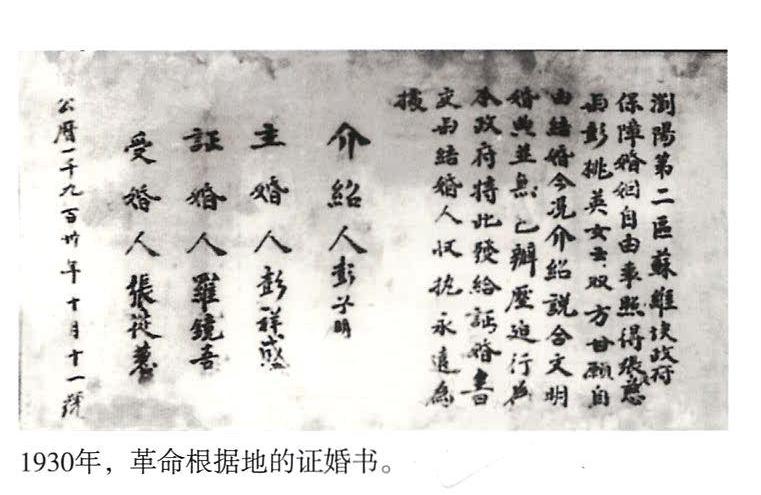 瀏陽第二區蘇維埃政府
保障婚姻自由事照得張慈
雨彭桃英女士双方甘願自
由結婚今況介紹説合文明
婚典並無乜辦壓迫行為
本政府特此發給証婚書
交雨結婚人収执永遠為
據
介紹人彭
主婚人彭祥盛
証婚人羅鏡吾
受婚人張
公曆一千九百卅年十月十一
1930年，革命根据地的证婚书。